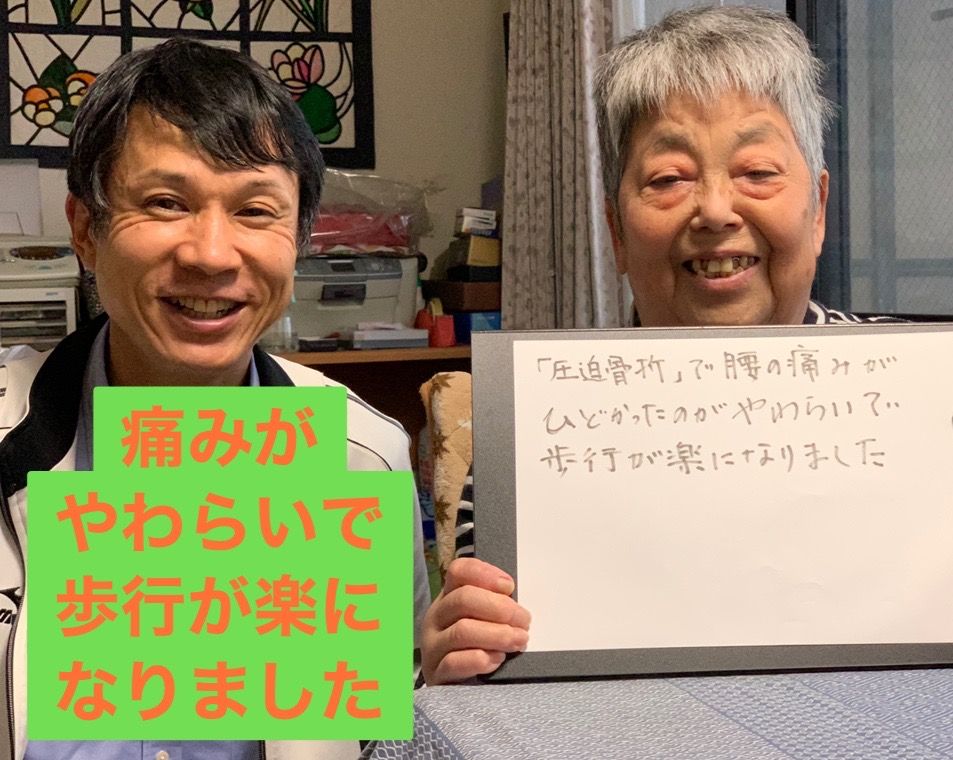 痛みが
やわらいで
歩行が楽に
なりました
「圧迫骨折」で腰の痛みが
ひどかったのがやわらいで
歩行が楽になりました